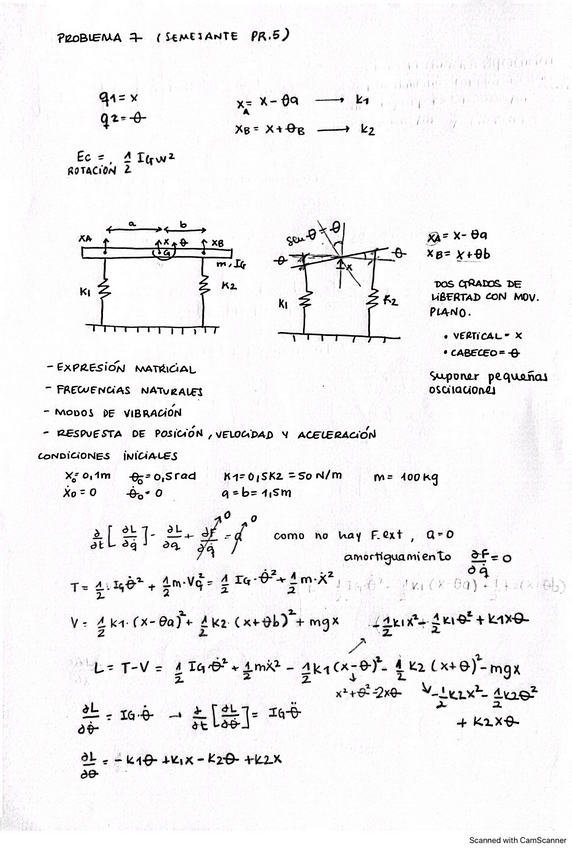 PROBLEMA 7 (SEMEJANTE PR.5)
q1 = x
q2 = θ
x_A = x - θa → K1
x_B = x + θ_B → K2
Ec = 1/2 I_G w²
ROTACIÓN
a b
XA x θ XB
G
m, IG
K1 K2
sen θ = θ
θ θ
x
K1 K2
x_A = x - θa
x_B = x + θb
DOS GRADOS DE
LIBERTAD CON MOV.
PLANO.
• VERTICAL = x
• CABECEO = θ
Suponer pequeñas
oscilaciones
- EXPRESIÓN MATRICIAL
- FRECUENCIAS NATURALES
- MODOS DE VIBRACIÓN
- RESPUESTA DE POSICIÓN, VELOCIDAD Y ACELERACIÓN
CONDICIONES INICIALES
x₀ = 0,1m θ₀ = 0,5 rad K1 = 0,5K2 = 50 N/m m = 100 kg
ẋ₀ = 0 θ̇₀ = 0 a = b = 1,5m
∂/∂t [∂L/∂q̇] - ∂L/∂q + ∂F/∂q̇ →0 = Q →0 como no hay F.ext, a = 0
amortiguamiento ∂F/∂q̇ = 0
T = 1/2 · I_G θ̇² + 1/2 m · V_G² = 1/2 I_G · θ̇² + 1/2 m · ẋ²
V = 1/2 K1 · (x - θa)² + 1/2 K2 · (x + θb)² + mgx
- 1/2 K1x² - 1/2 K1θ² + K1xθ
L = T - V = 1/2 I_G θ̇² + 1/2 mẋ² - 1/2 K1 (x - θ)² - 1/2 K2 (x + θ)² - mgx
x² + θ² - 2xθ
- 1/2 K2x² - 1/2 K2θ²
+ K2xθ
∂L/∂θ̇ = I_G · θ̇ → ∂/∂t [∂L/∂θ̇] = I_G θ̈
∂L/∂θ = - K1θ + K1x - K2θ + K2x
Scanned with CamScanner